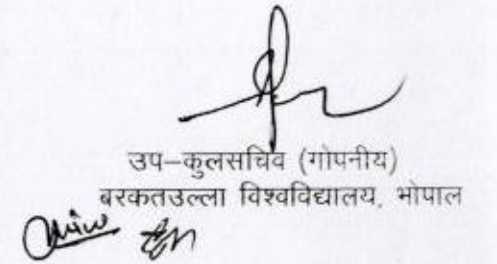 उप–कुलसचिव (गोपनीय)
बरकतउल्ला विश्वविद्यालय, भोपाल